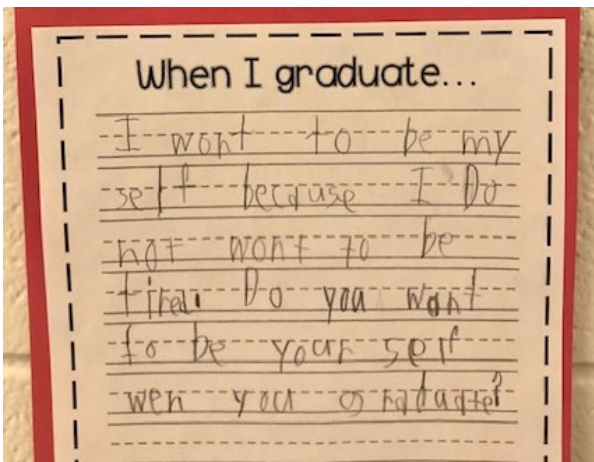 When I graduate...
I wont to be my
self because I Do
not wont to be
tired. Do you want
to be your self
wen you graduate?